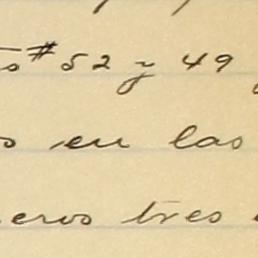 os #52 y 49
o en las
eros tres